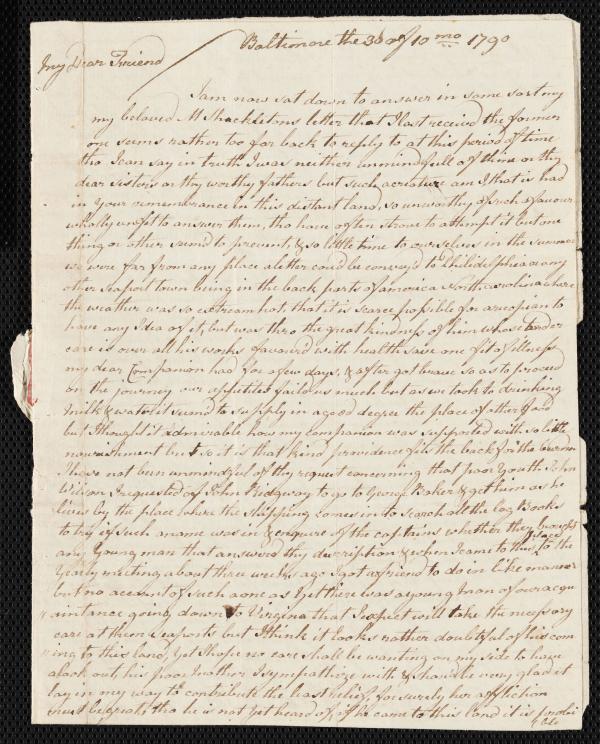 Baltimore the 30 of 10 mo 1790
My Dear Friend
I am now sat down to answer in some sort my
my beloved M Shackletons letter that I last received the former
one seems rather too far back to reply to at this period of time
tho I can say in truth I was neither unmindfull of thine or thy
dear Sisters or thy worthy fathers but such acreature am I that is had
in your remembrance in this distant land, so unworthy of such afavour
wholly unfit to answer them, tho have often strove to attempt it but one
thing or other seem'd to prevent, & so little time to ourselves in the summer
we were far from any place aletter could be convey'd to Philidelphia or any
other seaport town being in the back parts of america North carolina where
the weather was so extream hot, that it is scarce possible for an
to
have any Idea of it, but was thro the great kindness of him whose tender
care is over all his works favour'd with health save one fit of illness
my dear Companion had for afew days, & after got brave so as to proceed
on the journey our appetites fail'd us much but as we took to drinking
milk & water it seem'd to supply in agood degree the place of other food
but I thought it admirable how my companion was supported with so little
nourishment but so it is that kind providence fits the back for the burden
I have not been unmindful of thy request concerning that poor Youth John
Wilson I requested of John Ridgway to go to George Baker & get him as he
lives by the place where the shipping comes in to search all the log Books
to try if such aname was in & enquire of the captains whether they brought
any Young man that answered thy discription & when I came to this place to the
Yearly meeting about three weeks ago I got afriend to do in like manner
but no account of such aone as Yet there was ayoung man of our acqu
aintance going down to Virginia that I expect will take the necessary
care at them seaports but I think it looks rather doubtful of his com
ing to this land, Yet I hope no care shall be wanting on my side to have
alook out, his poor mother I sympathize with & should be very glad it
lay in my way to contribute the least relief, for surely her affliction
must be great, tho he is not Yet heard of, if he came to this land it is